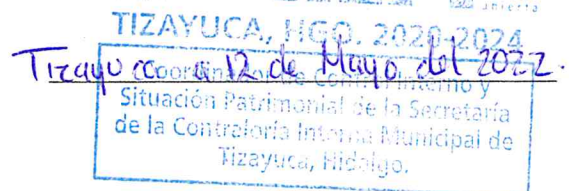 TIZAYUCA, HGO. 2020-2024
Tizayuca a 12 de Mayo del 2022.
Coordinación de Control Interno y
Situación Patrimonial de la Secretaría
de la Contraloría Interna Municipal de
Tizayuca, Hidalgo.